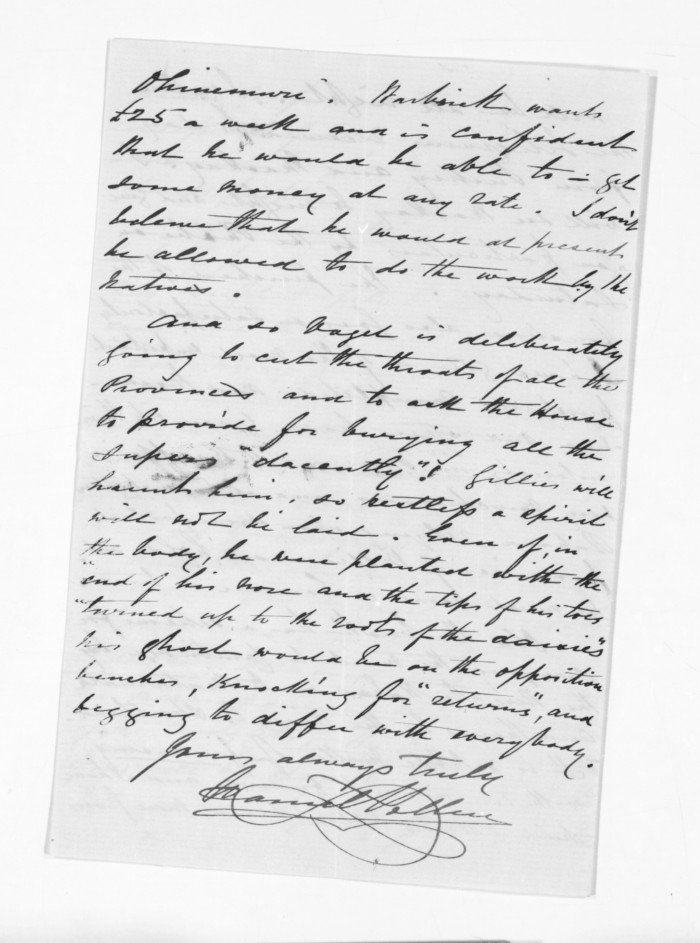 Ohinemuri. Warbrick wants
£25 a week and is confident
that he would be able to - get
some money at any rate. I don't
believe that he would at present
be allowed to do the work by the
Natives.
And so Vogel is deliberately
going to cut the throats of all the
Provinces and to ask the House
to provide for burying all the
Supers "dacently"! Gillies will
haunt him, so restless a spirit
will not be laid. Even if, in
the body, he were planted with the
"end of his nose and the tips of his toes
"turned up to the roots of the daisies"
his ghost would be on the opposition
benches, knocking for "returns", and
begging to differ with everybody.
Yours always truly
Daniel Pollen